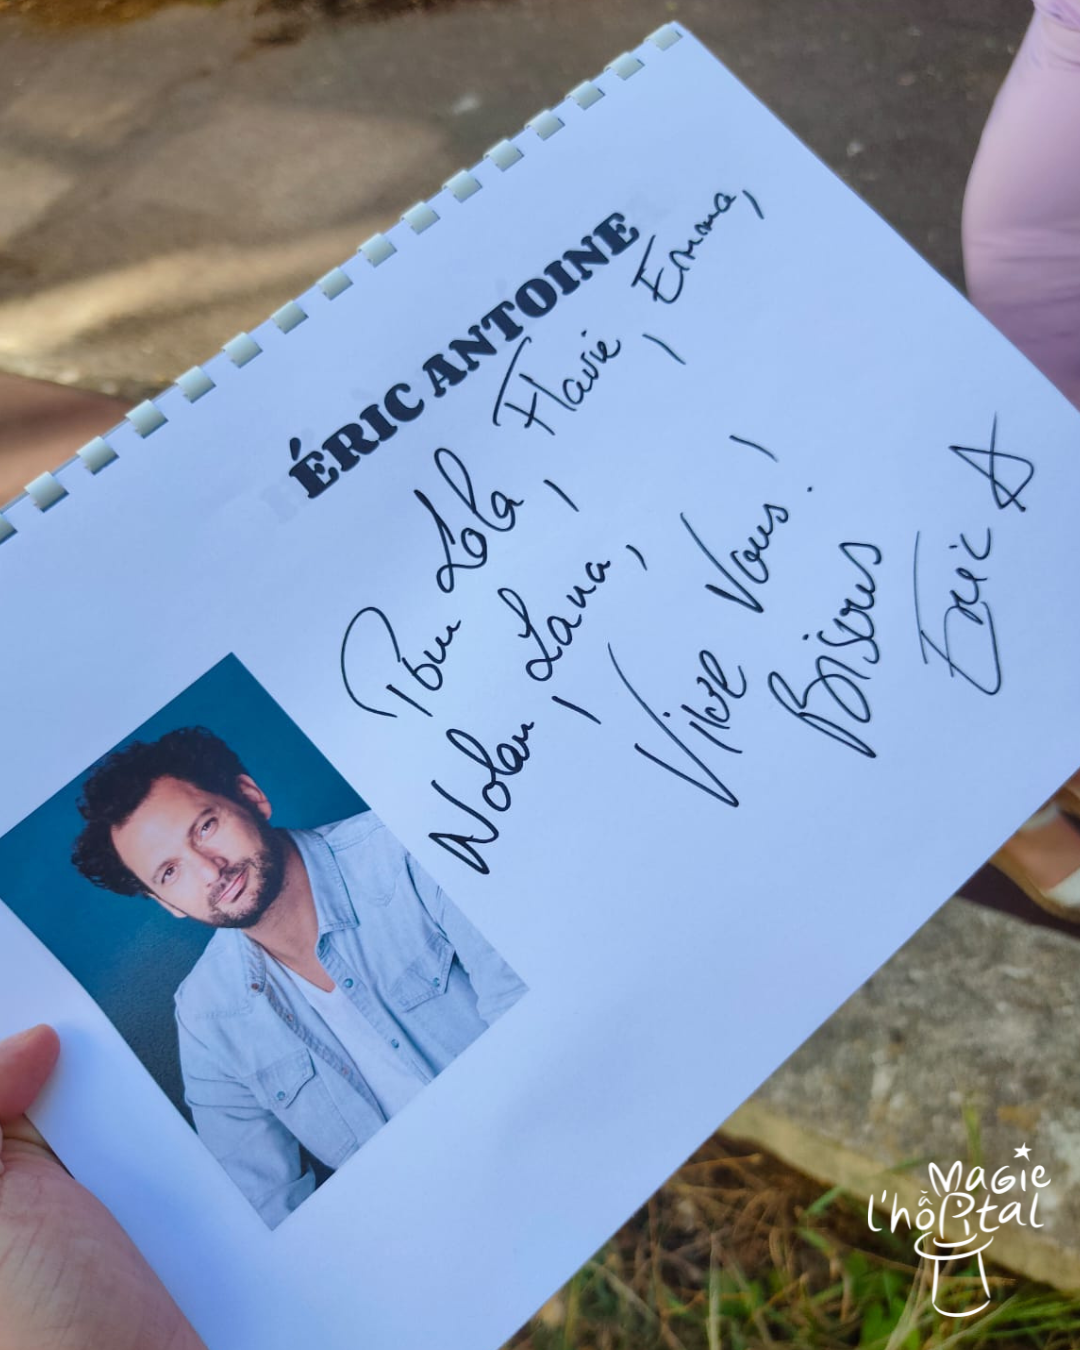 ÉRIC ANTOINE
Pour Lola, Flavie, Emma,
Nolan, Lana,
Vive Vous !
Bisous
Eric A
Magie
à
l'hôpital